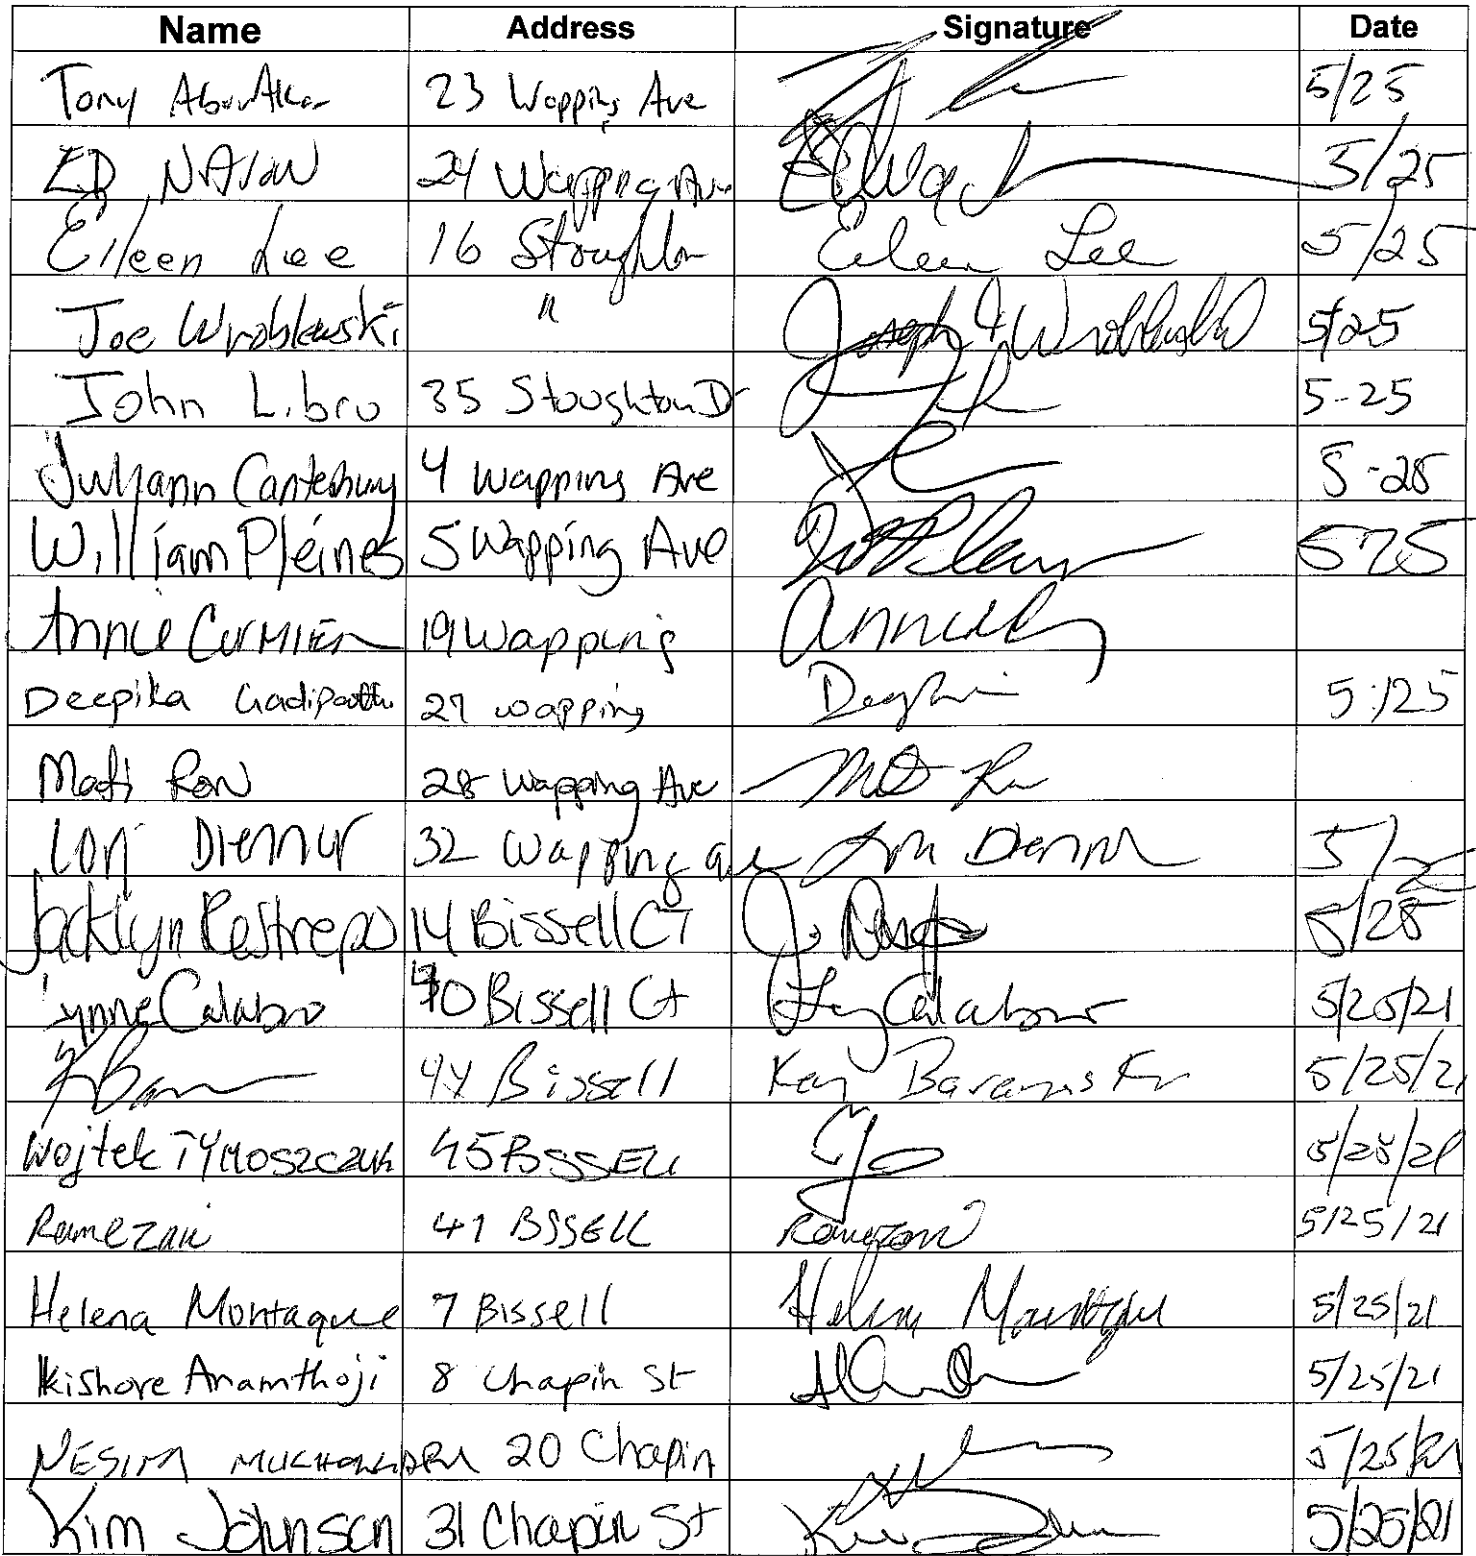 Name Address Signature Date
Tony 23 Wapping Ave 5/25
ED 24 Wapping Ave 5/25
Eileen Lee 16 Stoughton Eileen Lee 5/25
Joe Wroblewski " Joseph Wroblewski 5/25
John Libro 35 Stoughton Dr 5-25
Julyann Canterbury 4 Wapping Ave 5-25
William Pleines 5 Wapping Ave 525
Annie Cormier 19 Wapping
Deepika 27 wapping 5/25
Matt Ron 28 Wapping Ave
Lori 32 Wapping ave Lori 5/
Jacklyn Restrepo 14 Bissell CT 5/25
Lynne Calabro Bissell Ct Calabro 5/25/21
44 Bissell 5/25/21
Wojtek TYMOSZCZUK 45 BISSELL 5/25/21
Ramezani 41 BISSELL Ramezani 5/25/21
Helena Montaque 7 Bissell Helena 5/25/21
Kishore Anamthoji 8 Chapin St 5/25/21
NESIM 20 Chapin 5/25/21
Kim Johnson 31 Chapin St 5/25/21